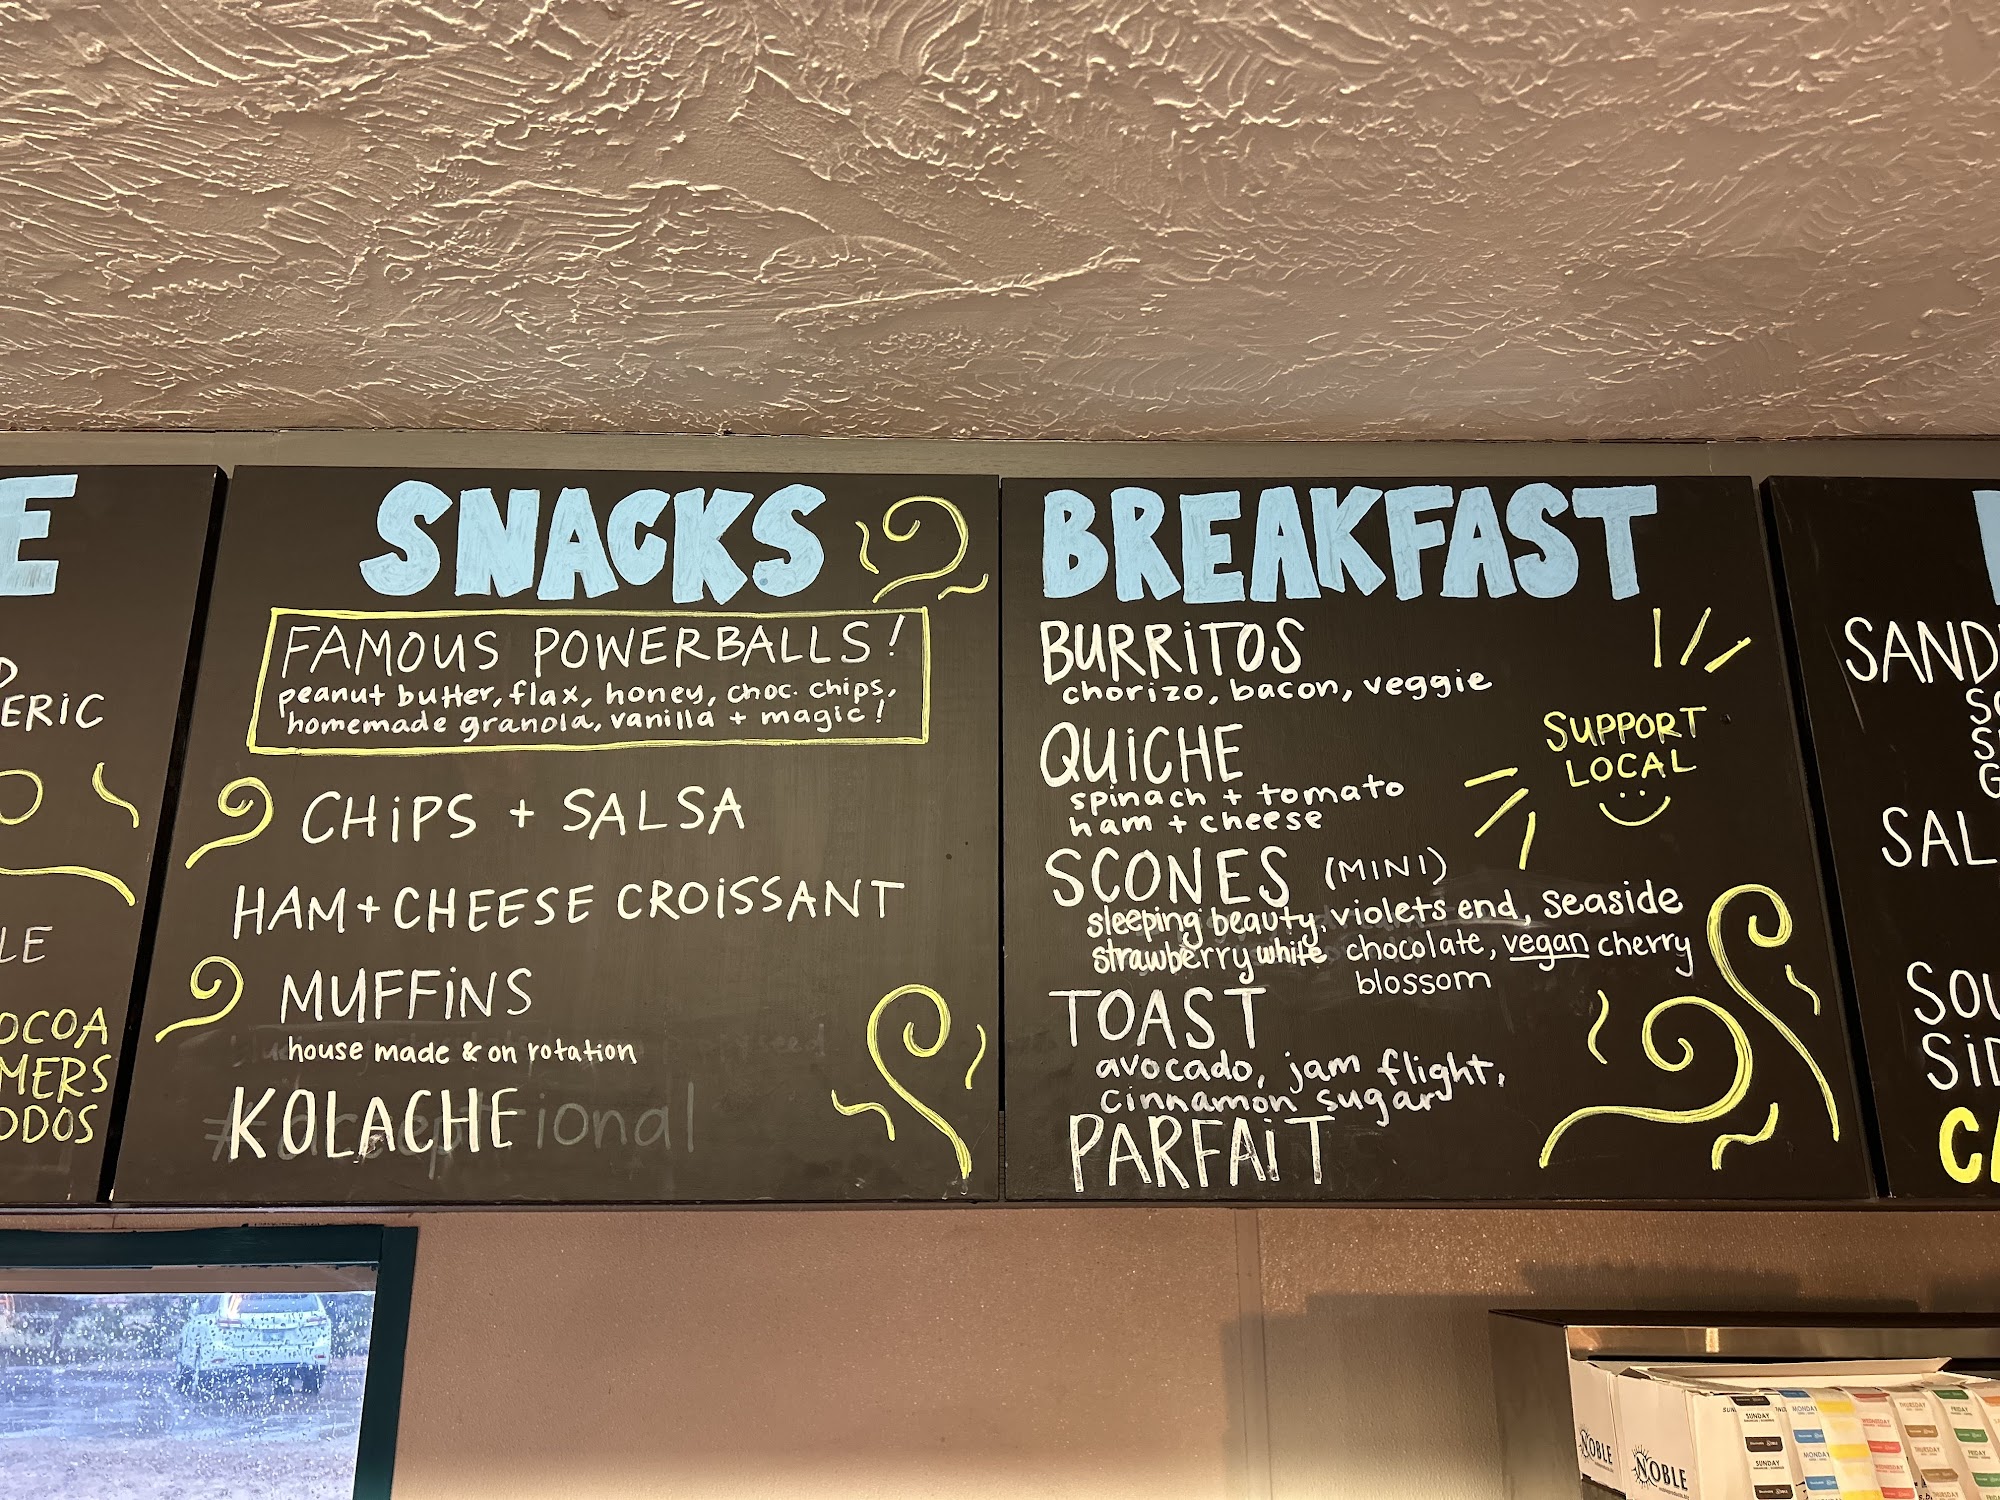 E
ERIC
LE
OCOA
MERS
ODOS
SNACKS
FAMOUS POWERBALLS!
peanut butter, flax, honey, choc. chips,
homemade granola, vanilla + magic!
CHiPS + SALSA
HAM + CHEESE CROiSSANT
MUFFiNS
house made & on rotation
KOLACHE
BREAKFAST
BURRiTOS
chorizo, bacon, veggie
QUiCHE
spinach + tomato
ham + cheese
SCONES (MINI)
sleeping beauty, violets end, seaside
strawberry white chocolate, vegan cherry
blossom
TOAST
avocado, jam flight,
cinnamon sugar
PARFAiT
SUPPORT
LOCAL
SAND
SAL
SOU
SiD
CA
NOBLE
NOBLE
SUNDAY
SUNDAY
MONDAY
MONDAY
WEDNESDAY
WEDNESDAY
THURSDAY
THURSDAY
FRIDAY
FRIDAY